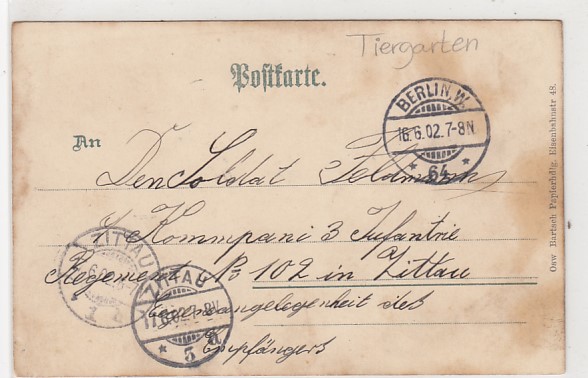 Tiergarten
Postkarte.
BERLIN.W.
16.6.02.7-8N
* 64 *
An
Den Soldat Feldmann
1 Kommpani 3 Infantrie
Regement No 102 in Zittau
Eigene Angelegenheit des
Empfängers
ZITTAU
ZITTAU
17.6.02.7-8V.
* 3 a
Osw Bartsch Papierhdlg. Eisenbahnstr 48.